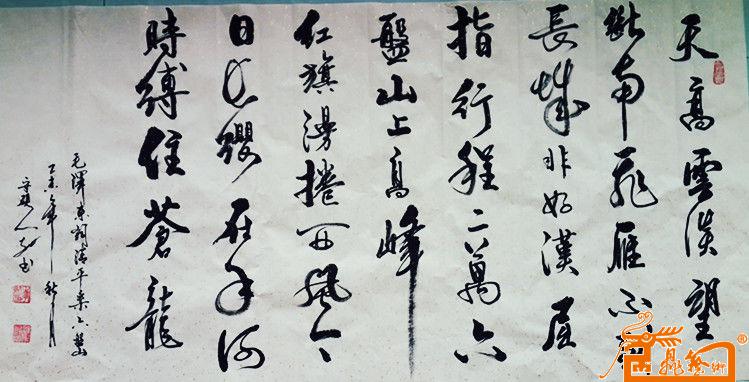 天高雲淡望
斷南飛雁不到
長城非好漢屈
指行程二萬六
盤山上高峰
红旗漫捲西風今
日長纓在手何
時縛住蒼龍
毛澤東詞清平樂六盤山
乙未年秋月
书